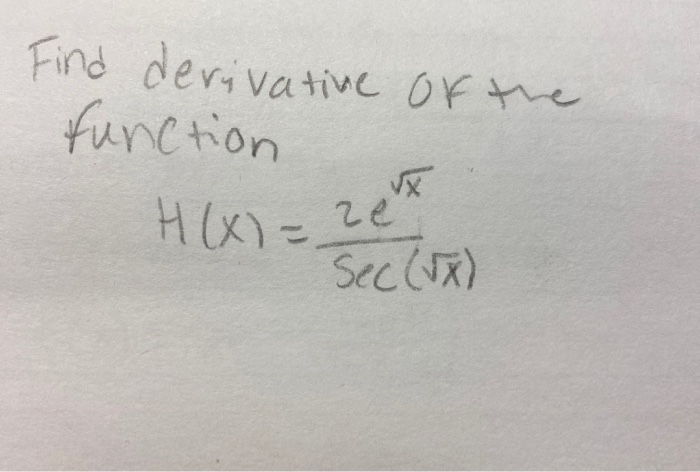 Find derivative of the
function
H(x) = 2e^√x / Sec(√x)